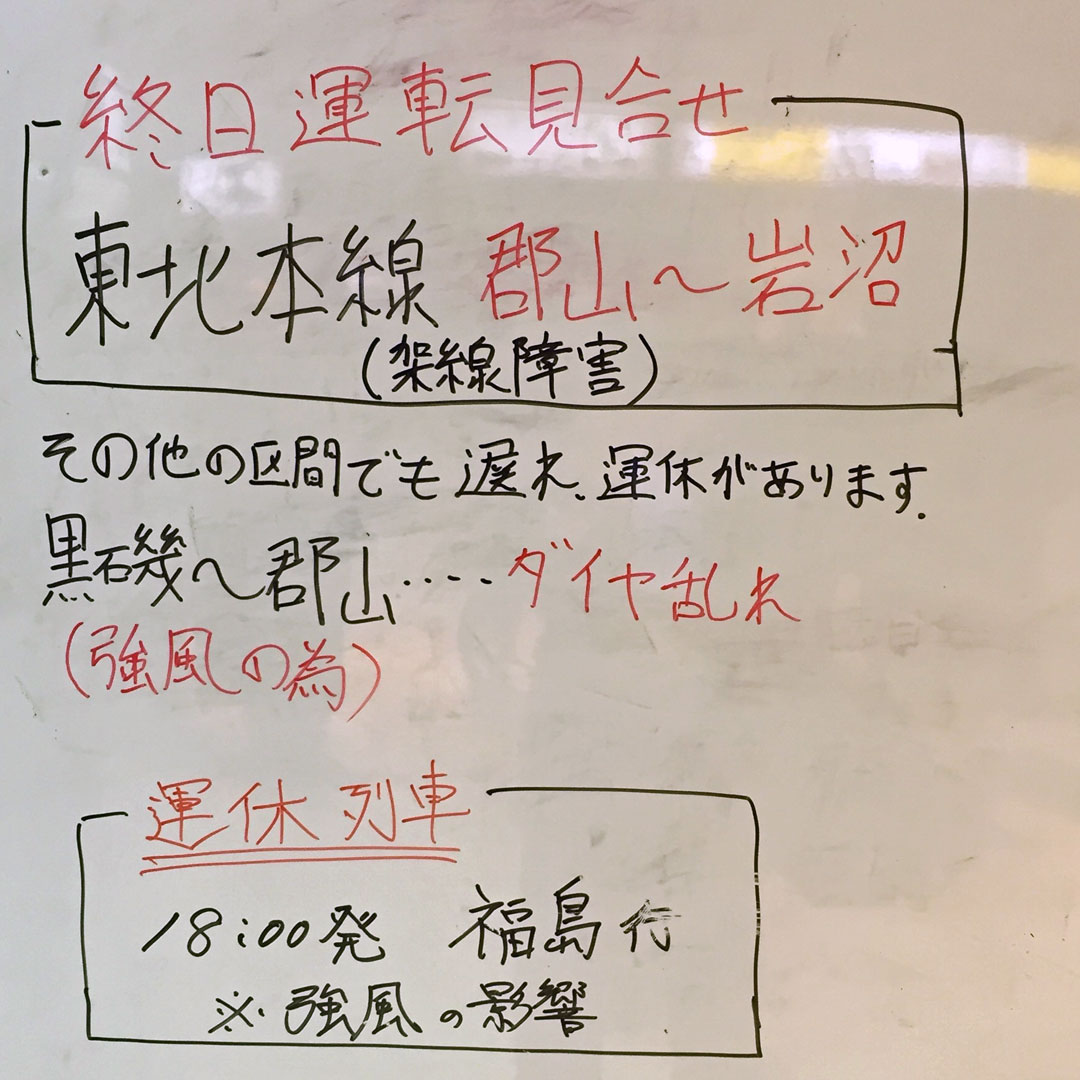 終日運転見合せ
東北本線 郡山～岩沼
(架線障害)
その他の区間でも遅れ、運休があります.
黒磯～郡山‥‥ダイヤ乱れ
(強風の為)
運休列車
18:00発 福島行
※強風の影響